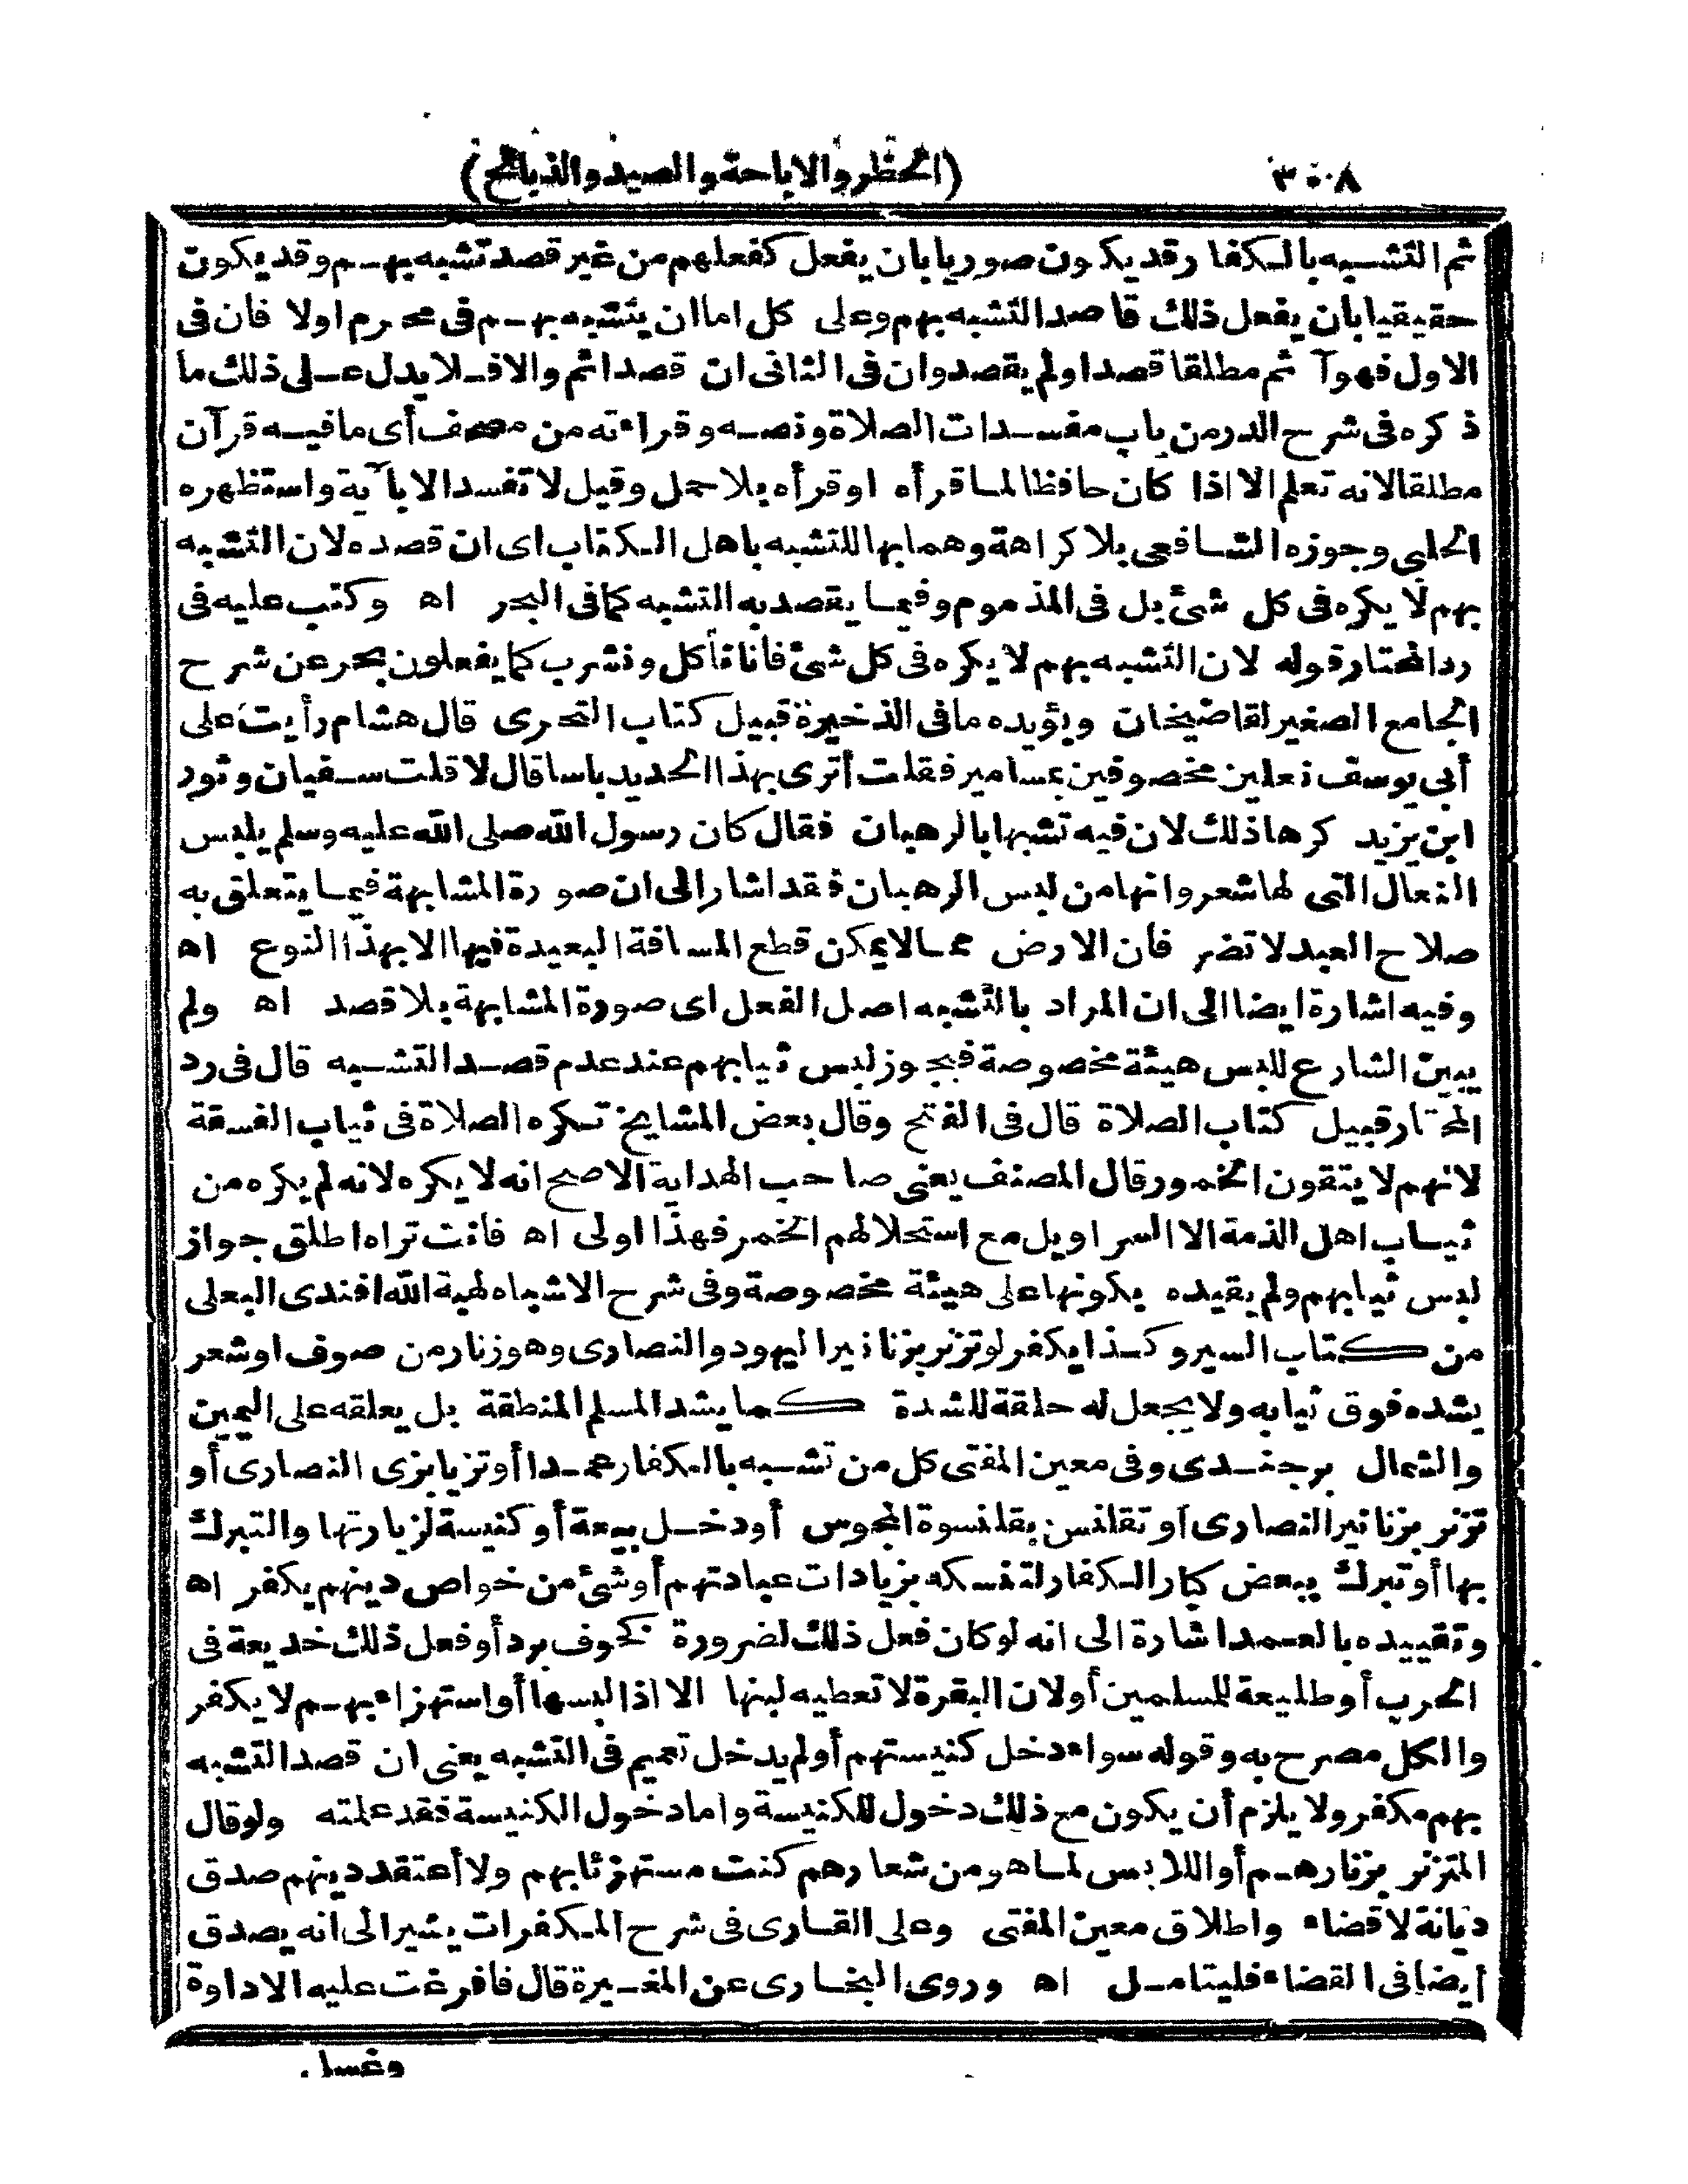 ٣٠٨
(الحظر والاباحة والصيد والذبائح)
ثم التشبه بالكفار قد يكون صوريا بان يفعل كفعلهم من غير قصد تشبه بهم وقد يكون
حقيقيا بان يفعل ذلك قاصدا التشبه بهم وعلى كل اما ان يتشبه بهم فى محرم اولا فان فى
الاول فهو آثم مطلقا قصد اولم يقصد وان فى الثانى ان قصد اثم والا فلا يدل على ذلك ما
ذكره فى شرح الدر من باب مفسدات الصلاة ونصه وقراءته من مصحف أى ما فيه قرآن
مطلقا لانه تعلم الا اذا كان حافظا لما قرأه اوقرأه بلا حمل وقيل لا تفسد الا بآية واستظهره
الحلبى وجوزه الشافعى بلا كراهة وهما بها للتشبه باهل الكتاب اى ان قصده لان التشبه
بهم لا يكره فى كل شئ بل فى المذموم وفيما يقصد به التشبه كما فى البحر اه وكتب عليه فى
رد المحتار قوله لان التشبه بهم لا يكره فى كل شئ فانا نأكل ونشرب كما يفعلون بحر عن شرح
الجامع الصغير لقاضيخان ويؤيده ما فى الذخيرة قبيل كتاب التحرى قال هشام رأيت على
أبى يوسف نعلين مخصوفين بمسامير فقلت أترى بهذا الحديد باسا قال لا قلت سفيان وثور
ابن يزيد كرها ذلك لان فيه تشبها بالرهبان فقال كان رسول الله صلى الله عليه وسلم يلبس
النعال التى لها شعر وانها من لبس الرهبان فقد اشار الى ان صورة المشابهة فيما يتعلق به
صلاح العبد لا تضر فان الارض مما لا يمكن قطع المسافة البعيدة فيها الا بهذا النوع اه
وفيه اشارة ايضا الى ان المراد بالتشبه اصل الفعل اى صورة المشابهة بلا قصد اه ولم
يبين الشارع للبس هيئة مخصوصة فيجوز لبس ثيابهم عند عدم قصد التشبه قال فى رد
المحتار قبيل كتاب الصلاة قال فى الفتح وقال بعض المشايخ تكره الصلاة فى ثياب الفسقة
لانهم لا يتقون الخمور قال المصنف يعنى صاحب الهداية الاصح انه لا يكره لانه لم يكره من
ثياب اهل الذمة الا السراويل مع استحلالهم الخمر فهذا اولى اه فانت تراه اطلق جواز
لبس ثيابهم ولم يقيده بكونها على هيئة مخصوصة وفى شرح الاشباه لهبة الله افندى البعلى
من كتاب السير وكذا يكفر لو تزنر بزنانير اليهود والنصارى وهو زنار من صوف اوشعر
يشده فوق ثيابه ولا يجعل له حلقة للشدة كما يشد المسلم المنطقة بل يعلقه على اليمين
والشمال برجندى وفى معين المفتى كل من تشبه بالكفار عمدا أو تزيا بزى النصارى أو
تزنر بزنانير النصارى أو تقلنس بقلنسوة المجوس أو دخل بيعة أو كنيسة لزيارتها والتبرك
بها أو تبرك ببعض كبار الكفار لتنسكه بزيادات عبادتهم أو شئ من خواص دينهم يكفر اه
وتقييده بالعمد اشارة الى انه لو كان فعل ذلك لضرورة كخوف برد أو فعل ذلك خديعة فى
الحرب أو طليعة للمسلمين أو لان البقرة لا تعطيه لبنها الا اذا لبسها أو استهزاء بهم لا يكفر
والكل مصرح به وقوله سواء دخل كنيستهم أو لم يدخل تعميم فى التشبه يعنى ان قصد التشبه
بهم مكفر ولا يلزم أن يكون مع ذلك دخول للكنيسة واما دخول الكنيسة فقد علمته ولو قال
المتزنر بزنارهم أو اللابس لما هو من شعارهم كنت مستهزئا بهم ولا أعتقد دينهم صدق
ديانة لا قضاء واطلاق معين المفتى وعلى القارى فى شرح المكفرات يشير الى انه يصدق
أيضا فى القضاء فليتامل اه وروى البخارى عن المغيرة قال فافرغت عليه الاداوة
وغسل